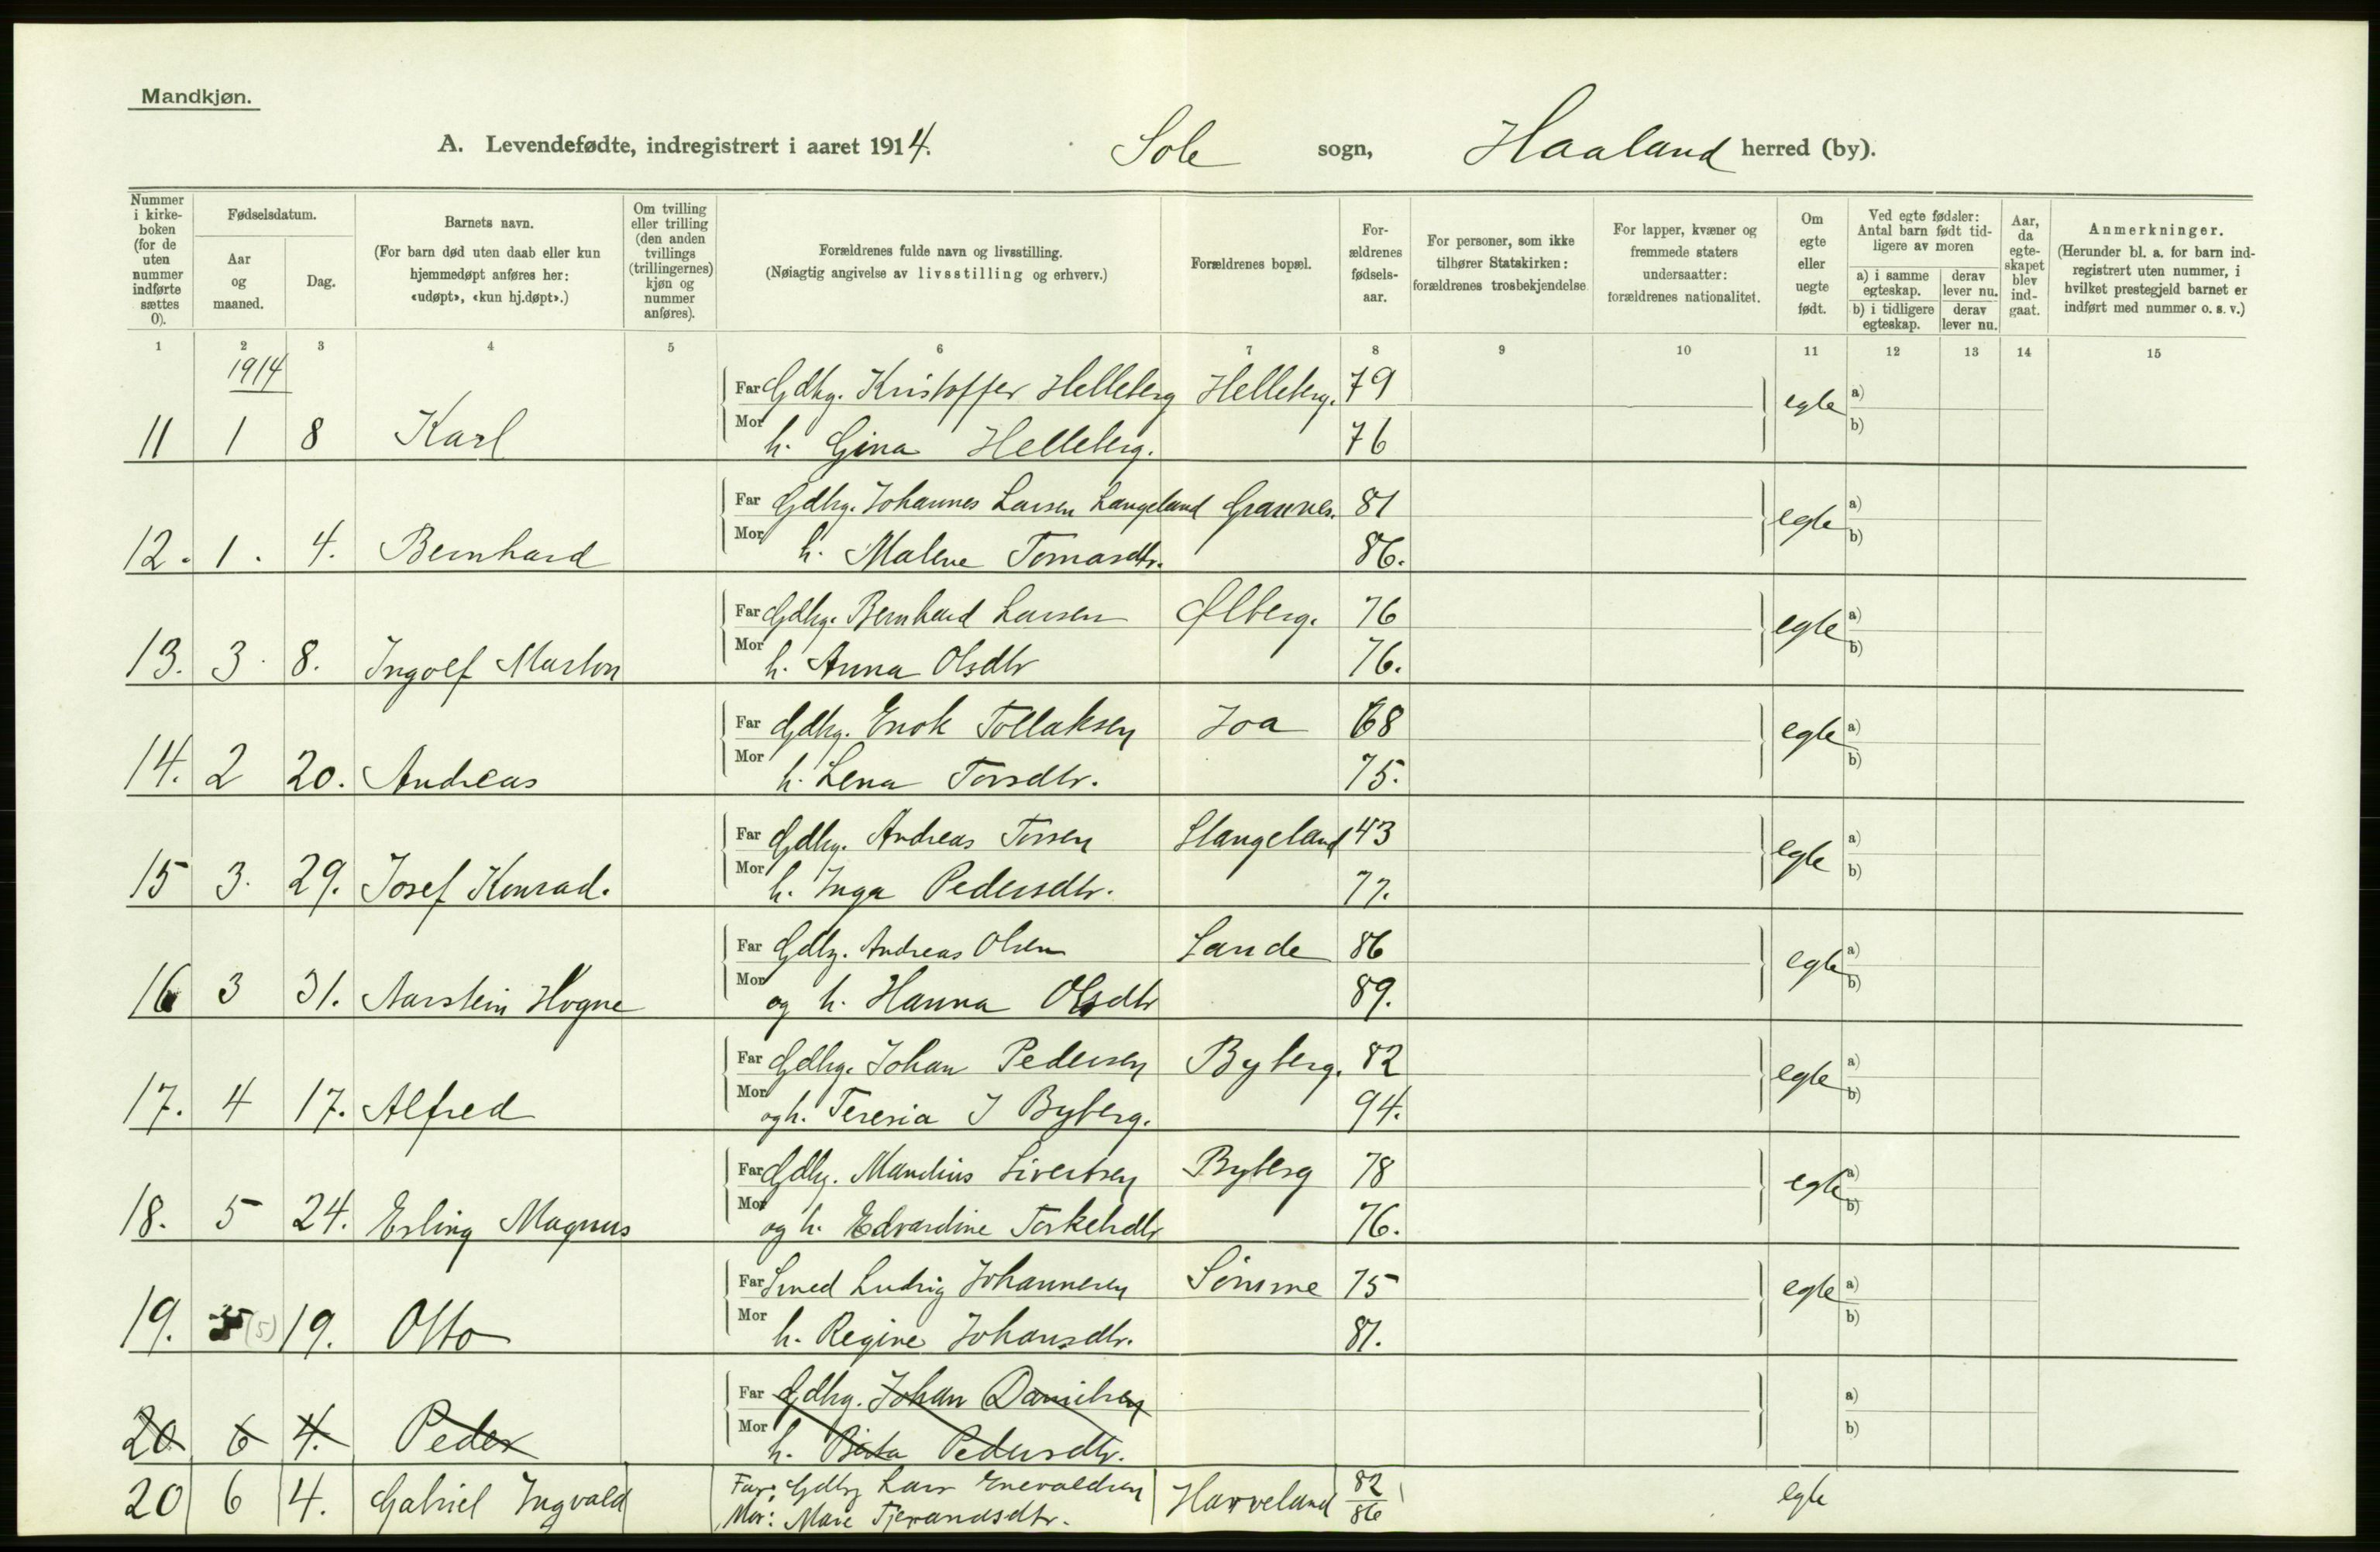 Mandkjøn.
A. Levendefødte, indregistrert i aaret 1914. Sole sogn, Haaland herred (by).
Nummer i kirke-boken (for de uten nummer indførte sættes 0).
Fødselsdatum.
Aar og maaned.
Dag.
Barnets navn.
(For barn død uten daab eller kun hjemmedøpt anføres her: «udøpt», «kun hj.døpt».)
Om tvilling eller trilling (den anden tvillings (trillingernes) kjøn og nummer anføres).
Forældrenes fulde navn og livsstilling.
(Nøiagtig angivelse av livsstilling og erhverv.)
Forældrenes bopæl.
For-ældrenes fødsels-aar.
For personer, som ikke tilhører Statskirken: forældrenes trosbekjendelse
For lapper, kvæner og fremmede staters undersaatter: forældrenes nationalitet.
Om egte eller uegte født.
Ved egte fødsler: Antal barn født tid-ligere av moren
a) i samme egteskap.
derav lever nu.
b) i tidligere egteskap.
derav lever nu.
Aar, da egte-skapet blev ind-gaat.
Anmerkninger.
(Herunder bl. a. for barn ind-registrert uten nummer, i hvilket prestegjeld barnet er indført med nummer o. s. v.)
1 2 3 4 5 6 7 8 9 10 11 12 13 14 15
1914
Far Gdbg. Kristoffer Helleberg Helleberg. 79
11 1 8 Karl Mor h. Gina Helleberg. 76 egte a) b)
Far Gdbg. Johannes Larsen Langeland Grannes. 81
12. 1. 4. Bernhard Mor h. Malene Tomasdtr. 86. egte a) b)
Far Gdbg. Bernhard Larsen Ølberg. 76
13. 3. 8. Ingolf Marton Mor h. Anna Olsdtr 76. egte a) b)
Far Gdbg. Enok Tollaksen Joa 68
14. 2 20. Andreas Mor h. Lena Torsdtr. 75. egte a) b)
Far Gdbg. Andreas Torsen Stangeland 43
15 3. 29. Josef Konrad. Mor h. Inga Pedersdtr. 77. egte a) b)
Far Gdbg. Andreas Olsen Sande 86
16 3 31. Aarstein Hogne Mor og h. Hanna Olsdtr 89. egte a) b)
Far Gdbg. Johan Pedersen Byberg. 82
17. 4 17. Alfred Mor og h. Teresia J Byberg. 94. egte a) b)
Far Gdbg. Mandius Sivertsen Byberg 78
18. 5 24. Erling Magnus Mor og h. Edvardine Torkelsdtr 76. egte a) b)
Far Smed Ludvig Johannesen Sømme 75
19. (5) 19. Otto Mor h. Regine Johansdtr. 81. egte a) b)
Far Gdbg. Johan Danielsen
20 6 4. Peder Mor h. Berta Pedersdtr. a) b)
Far: Gdbg Lars Enevaldsen Harveland 82
20 6 4. Gabriel Ingvald Mor: Mare Tjerandsdtr. 86 egte